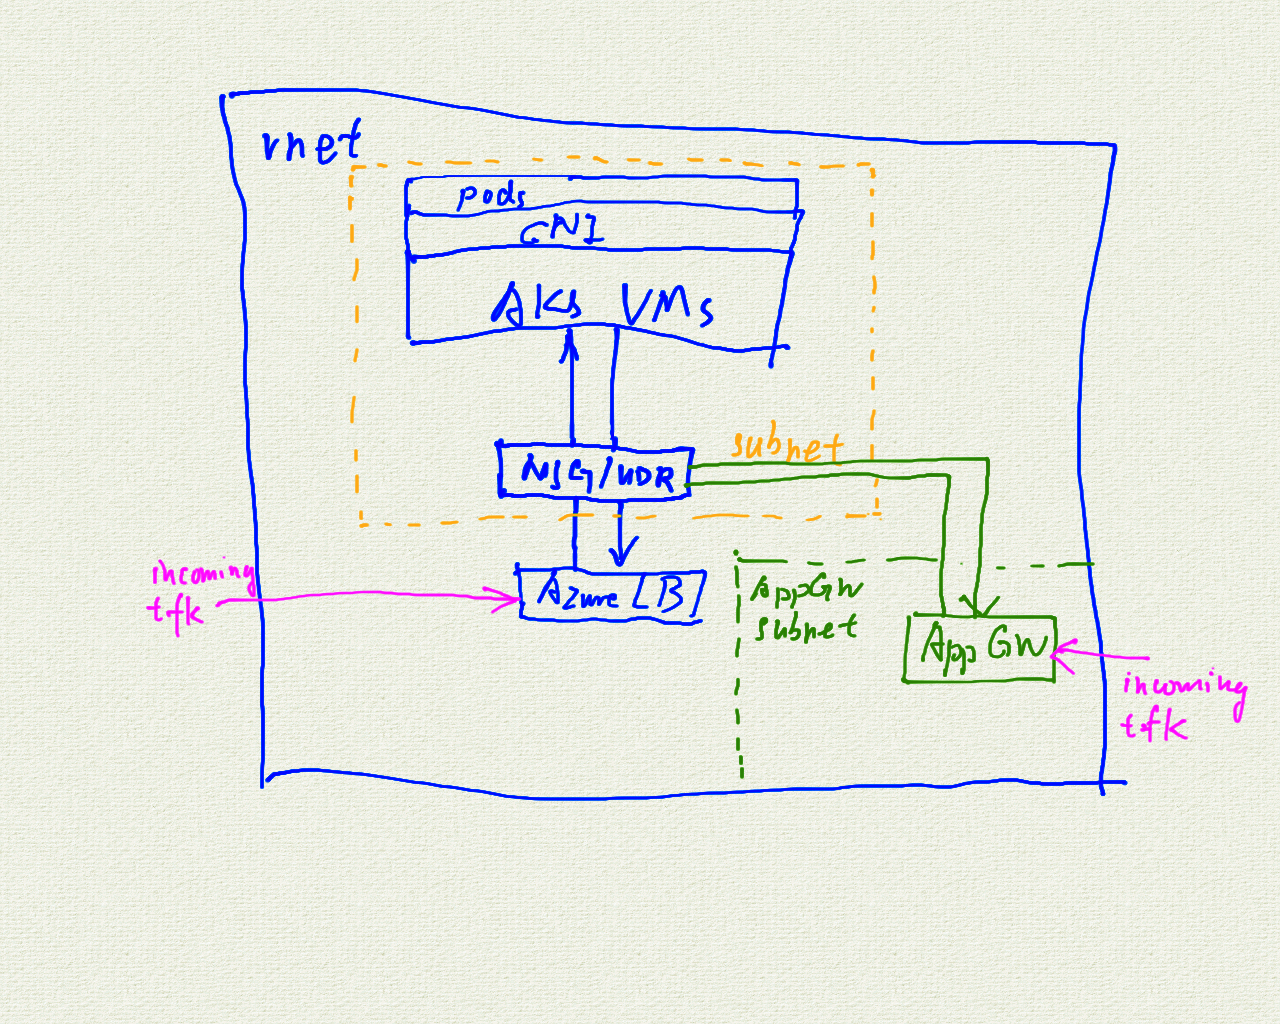 vnet
pods
CNI
AKs VMs
subnet
NSG/UDR
incoming
tfk
Azure LB
AppGW
subnet
App GW
incoming
tfk